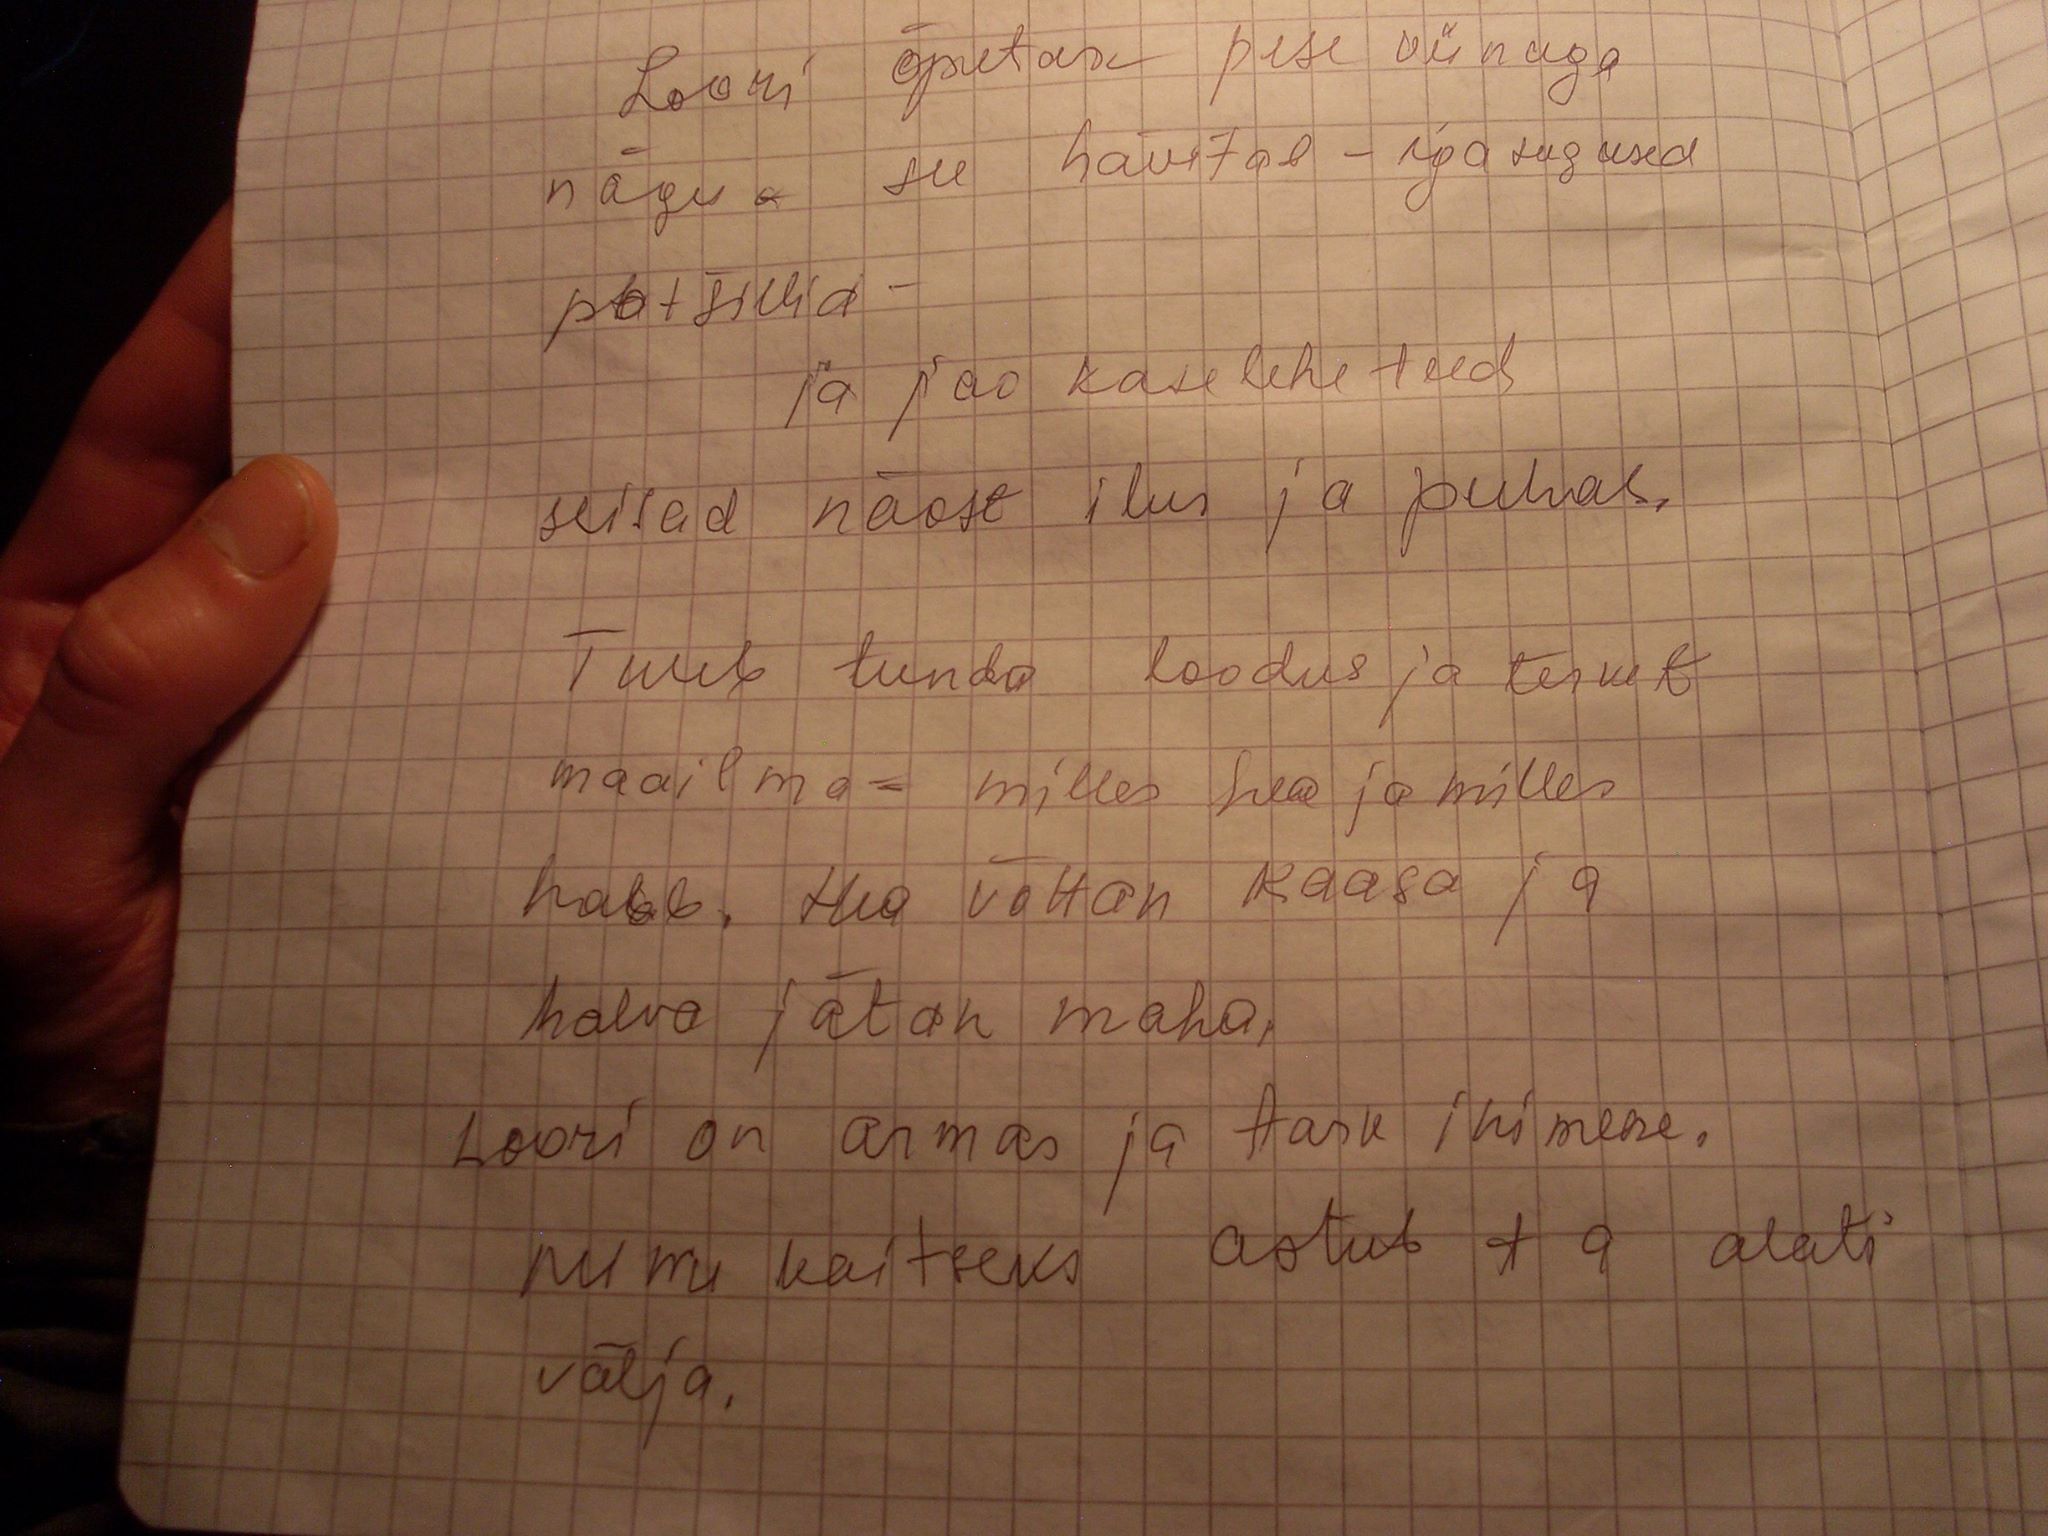 Loori õpetas pese viinaga
nägu - see hävitab - igasugused
patsillid -
ja jao kaselehe teed
seisad näost ilus ja puhas.
Tuleb tunda loodus ja tervet
maailma - milles hea ja milles
halb. Hea võttan kaasa ja
halva jätan maha.
Loori on armas ja tark inimene.
kaitseks astub ta alati
välja.